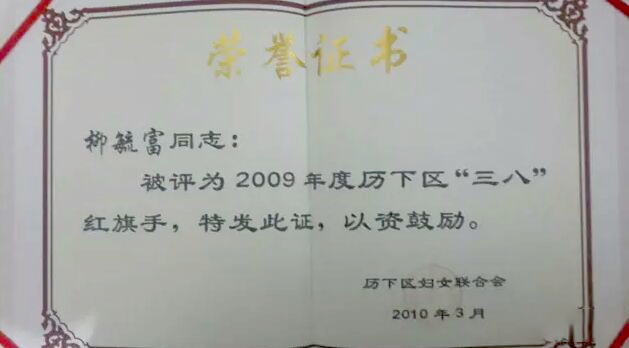 荣誉证书
柳毓富同志：
被评为2009年度历下区“三八”
红旗手，特发此证，以资鼓励。
历下区妇女联合会
2010年3月